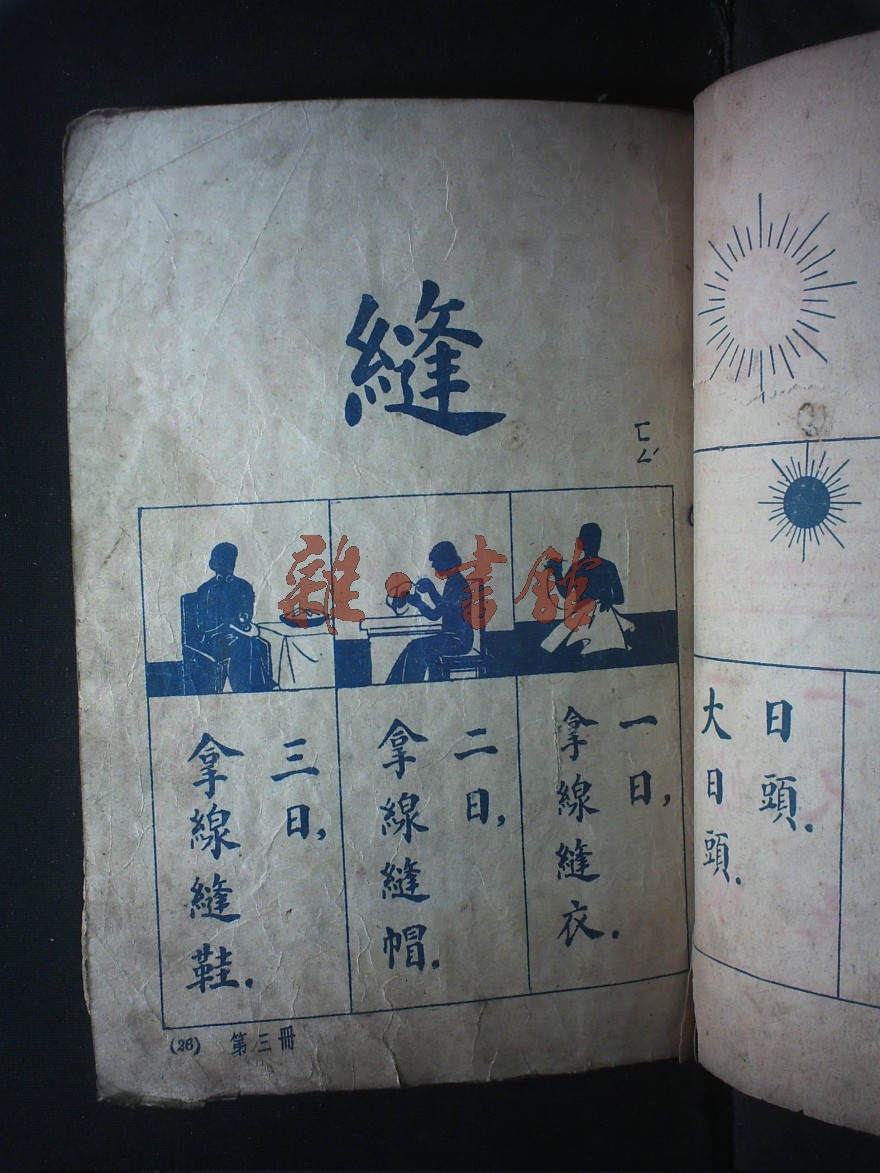 縫
ㄈㄥˊ
一日，
拿線縫衣．
二日，
拿線縫帽．
三日，
拿線縫鞋．
(26) 第三冊
日頭．
大日頭．
雜·書館